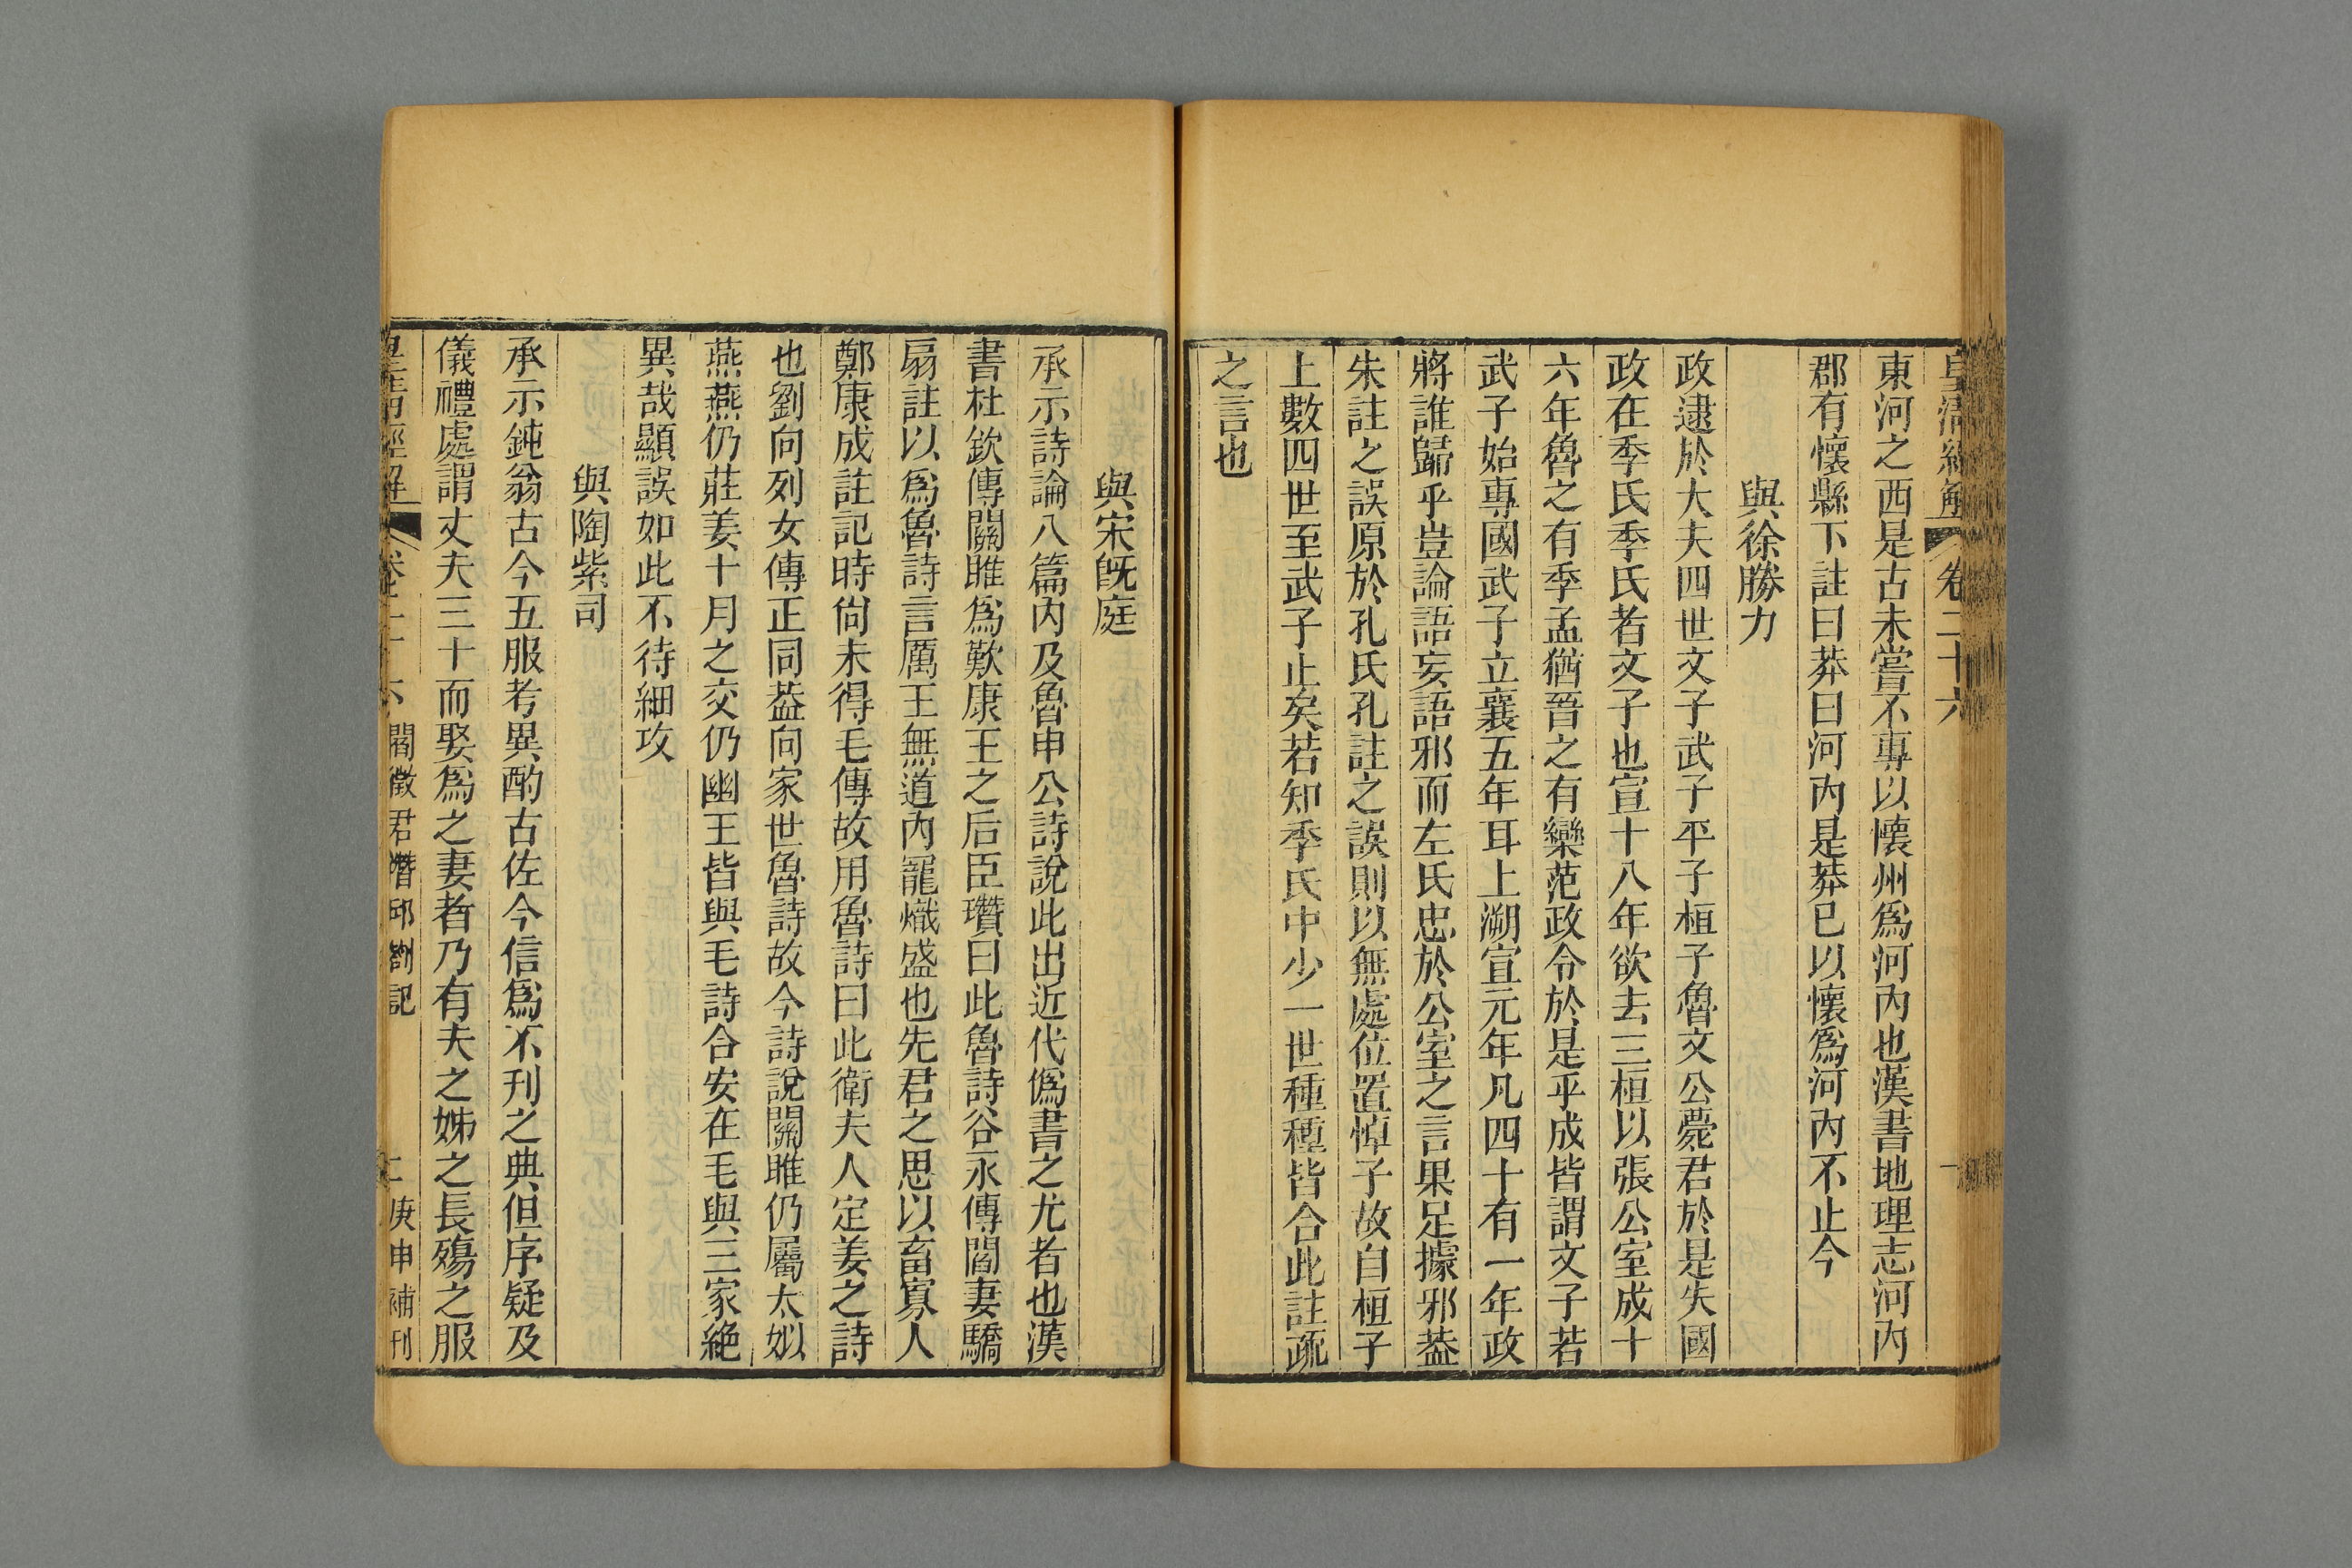 皇清經解 卷二十六
東河之西是古未嘗不專以懷州爲河內也漢書地理志河內
郡有懷縣下註曰莽曰河內是莽已以懷爲河內不止今
與徐勝力
政逮於大夫四世文子武子平子桓子魯文公薨君於是失國
政在季氏季氏者文子也宣十八年欲去三桓以張公室成十
六年魯之有季孟猶晉之有欒范政令於是乎成皆謂文子若
武子始專國武子立襄五年耳上溯宣元年凡四十有一年政
將誰歸乎豈論語妄語邪而左氏忠於公室之言果足據邪葢
朱註之誤原於孔氏孔註之誤則以無處位置悼子故自桓子
上數四世至武子止矣若知季氏中少一世種種皆合此註疏
之言也
與宋旣庭
承示詩論八篇內及魯申公詩說此出近代僞書之尤者也漢
書杜欽傳關雎爲歎康王之后臣瓚曰此魯詩谷永傳閻妻驕
扇註以爲魯詩言厲王無道內寵熾盛也先君之思以畜寡人
鄭康成註記時尙未得毛傳故用魯詩曰此衛夫人定姜之詩
也劉向列女傳正同葢向家世魯詩故今詩說關雎仍屬太姒
燕燕仍莊姜十月之交仍幽王皆與毛詩合安在毛與三家絕
異哉顯誤如此不待細攻
與陶紫司
承示鈍翁古今五服考異酌古佐今信爲不刊之典但序疑及
儀禮處謂丈夫三十而娶爲之妻者乃有夫之姊之長殤之服
皇清經解 卷二十六 閻徵君潛邱劄記 二 庚申補刊